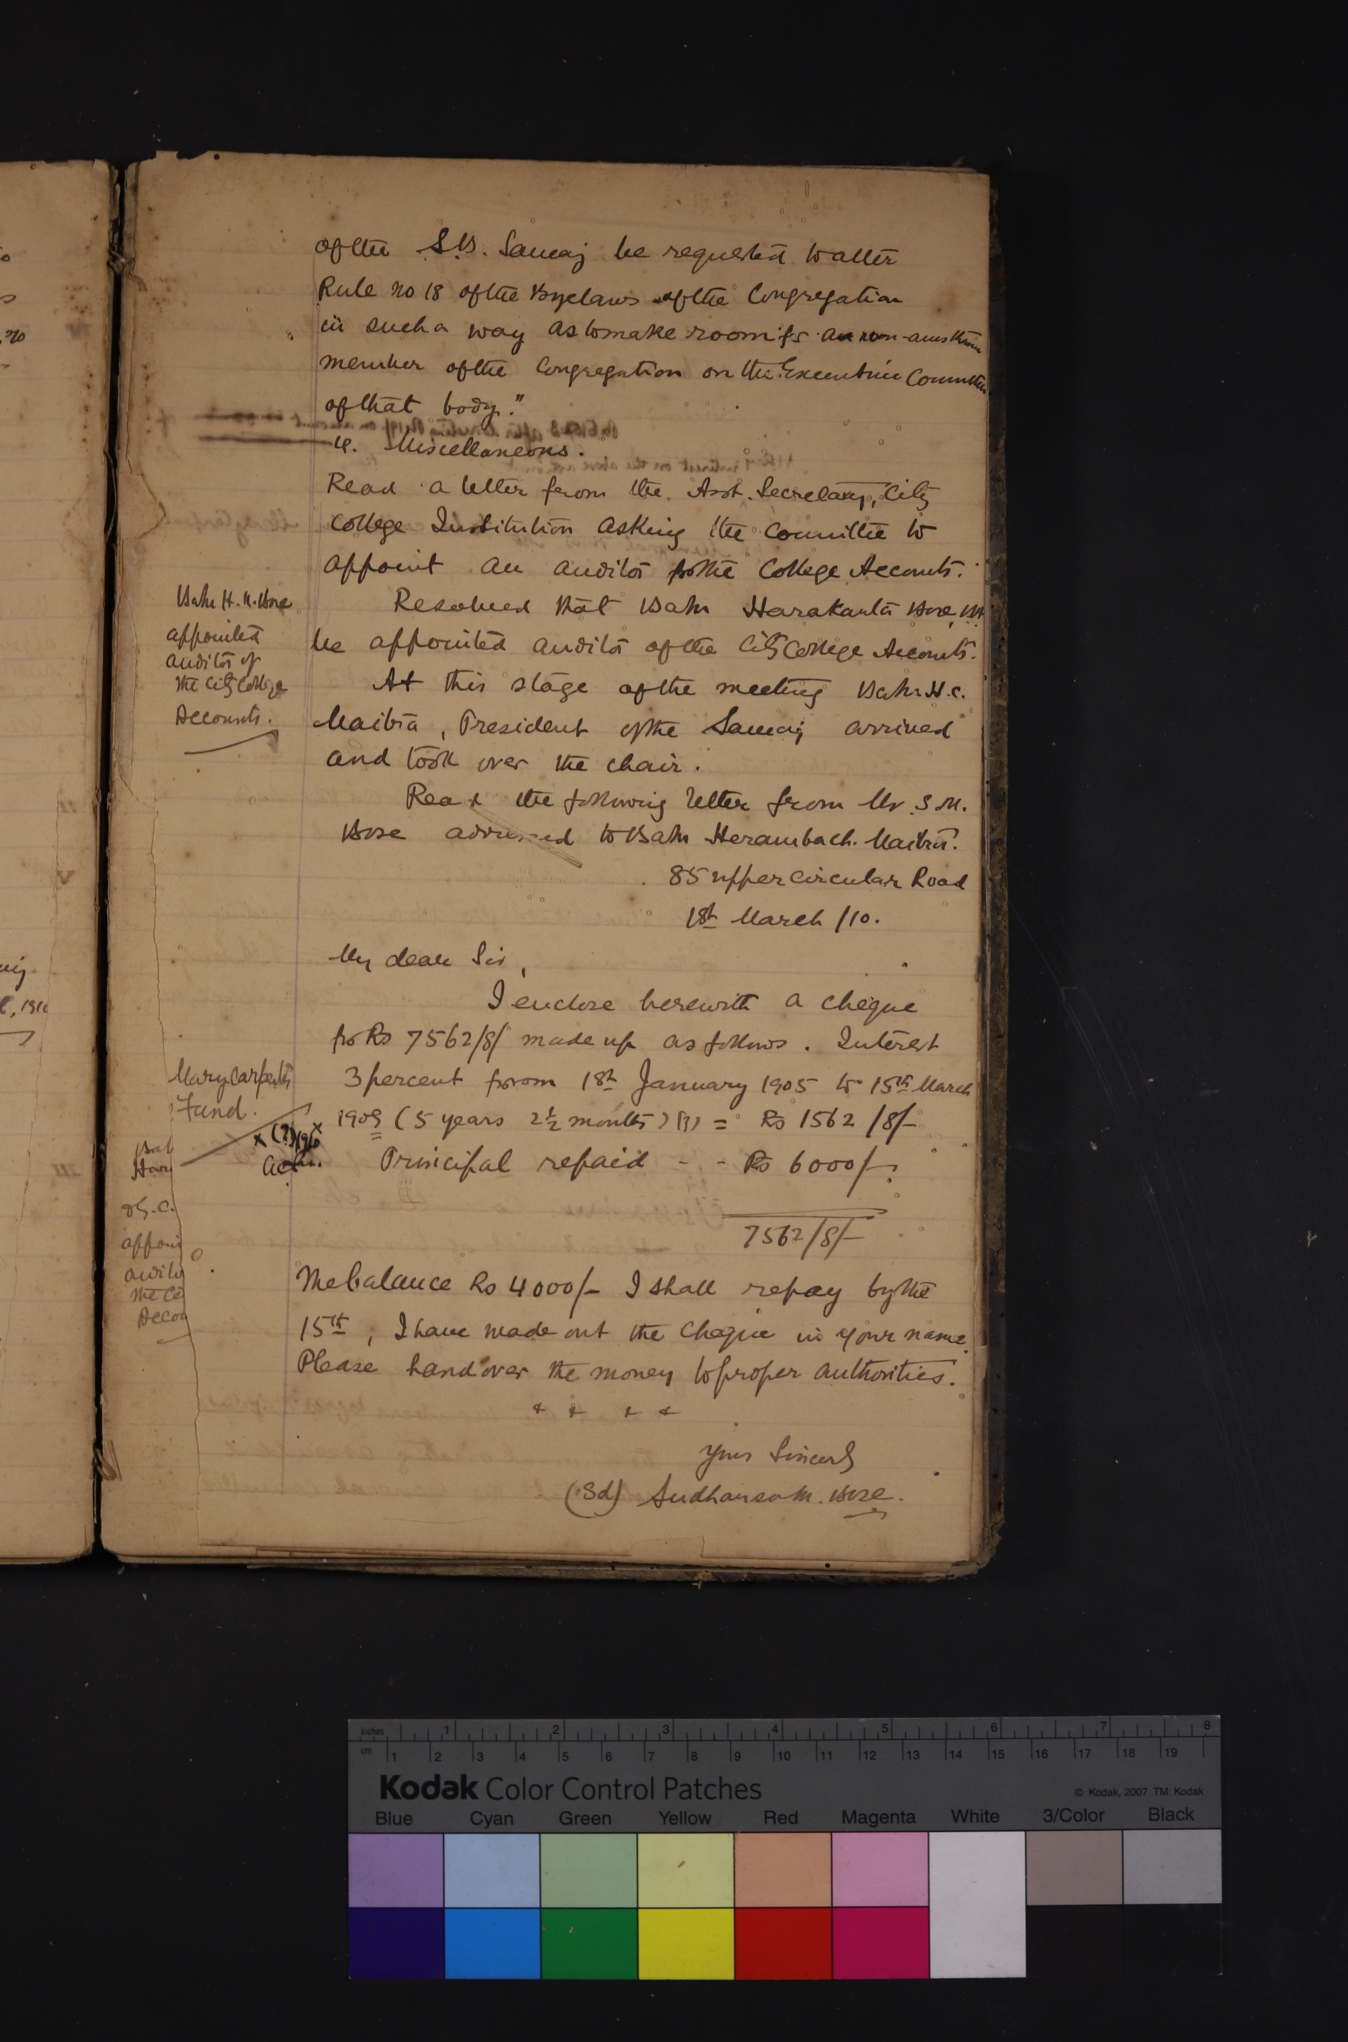 of the S.B. Samaj be requested to alter
Rule no 18 of the Byelaws of the Congregation
in such a way as to make room for an non-anusthanic
member of the Congregation on the Executive Committee
of that body."
Miscellaneous.
Read a letter from the Asst. Secretary, City
College Institution asking the Committee to
appoint an auditor for the College Accounts.
Babu H. K. Bose
appointed
auditor of
the City College
Accounts.
Resolved that Babu Harakanta Bose,
be appointed auditor of the City College Accounts.
At this stage of the meeting Babu H.C.
Maitra, President of the Samaj arrived
and took over the chair.
Read the following letter from Mr. S.M.
Bose addressed to Babu Herambach. Maitra.
85 upper circular Road
1st March /10.
My dear Sir,
I enclose herewith a cheque
for Rs 7562/8/ made up as follows. Interest
Mary Carpenter
Fund.
3 percent from 1st January 1905 to 15th March
1909 (5 years 2½ months) (?) = Rs 1562/8/-
x (?) 1910 x
Principal repaid - - Rs 6000/-
7562/8/-
The balance Rs 4000/- I shall repay by the
15th, I have made out the cheque in your name.
Please hand over the money to proper authorities.
+ + + +
Yours Sincerely
(Sd) Sudhansu M. Bose.
Kodak Color Control Patches
© Kodak, 2007 TM: Kodak
Blue Cyan Green Yellow Red Magenta White 3/Color Black